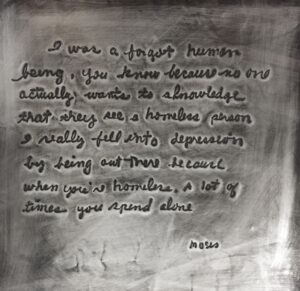 I was a forgot human
being, you know because no one
actually wants to aknowledge
that they see a homeless person
I really fell into depression
by being out there because
when you're homeless, a lot of
times you spend alone
Moses